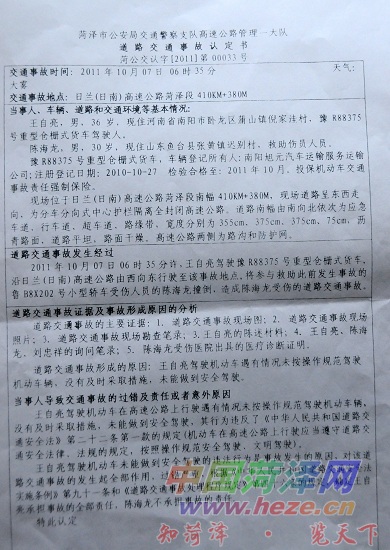 菏泽市公安局交通警察支队高速公路管理一大队
道路交通事故认定书
菏公交认字[2011]第00033号
交通事故时间：2011年10月07日06时35分 天气：
大雾
交通事故地点：日兰(日南)高速公路菏泽段410KM+380M
当事人、车辆、道路和交通环境等基本情况：
王自亮，男，36岁，现住河南省南阳市卧龙区蒲山镇倪家洼村，豫R888
375号重型仓栅式货车驾驶人。
陈海龙，男，30岁，现住山东鱼台县张黄镇迟别村，救助伤员人员。
豫R88375号重型仓栅式货车，车辆登记所有人：南阳旭元汽车运输服务公
司；注册登记日期：2010-10-27 检验合格至：2011年10月，投保机动车交
通事故责任强制保险。
现场位于日兰(日南)高速公路菏泽段南幅410KM+380M，现场道路呈东西走
向，为分车分向式中心护栏隔离全封闭高速公路，道路南幅由南向北依次为应急
车道、行车道、超车道、路缘带，宽度分别为355cm、375cm、375cm、75cm，沥
青路面，道路平坦，路面干燥，高速公路两侧为路沟和防护网。
道路交通事故发生经过
2011年10月07日06时35分许，王自亮驾驶豫R88375号重型仓栅式货车，
沿日兰(日南)高速公路由西向东行驶至该事故地点，将参与救助此前发生事故的
鲁B8X202号小型轿车受伤人员的陈海龙撞倒，造成陈海龙受伤的道路交通事故。
道路交通事故证据及事故形成原因的分析
道路交通事故的主要证据：1、道路交通事故现场图；2、道路交通事故现场
照片；3、道路交通事故现场勘查笔录；3、王自亮的陈述材料；4、王自亮、陈海
龙、刘忠祥的询问笔录；5、陈海龙受伤医院出具的医疗诊断证明。
道路交通事故形成的原因：王自亮驾驶机动车遇有情况未按操作规范驾驶
机动车辆，没有及时采取措施，未能做到安全驾驶。
当事人导致交通事故的过错及责任或者意外原因
王自亮驾驶机动车在高速公路上行驶遇有情况未按操作规范驾驶机动车辆，
没有及时采取措施，未能做到安全驾驶，其行为违反了《中华人民共和国道路交
通安全法》第二十二条第一款的规定(机动车在高速公路上行驶应当遵守道路交
通安全法律、法规的规定，按照操作规范安全驾驶、文明驾驶)。
特此认定
中国菏泽网
www.heze.cn
知菏泽·览天下